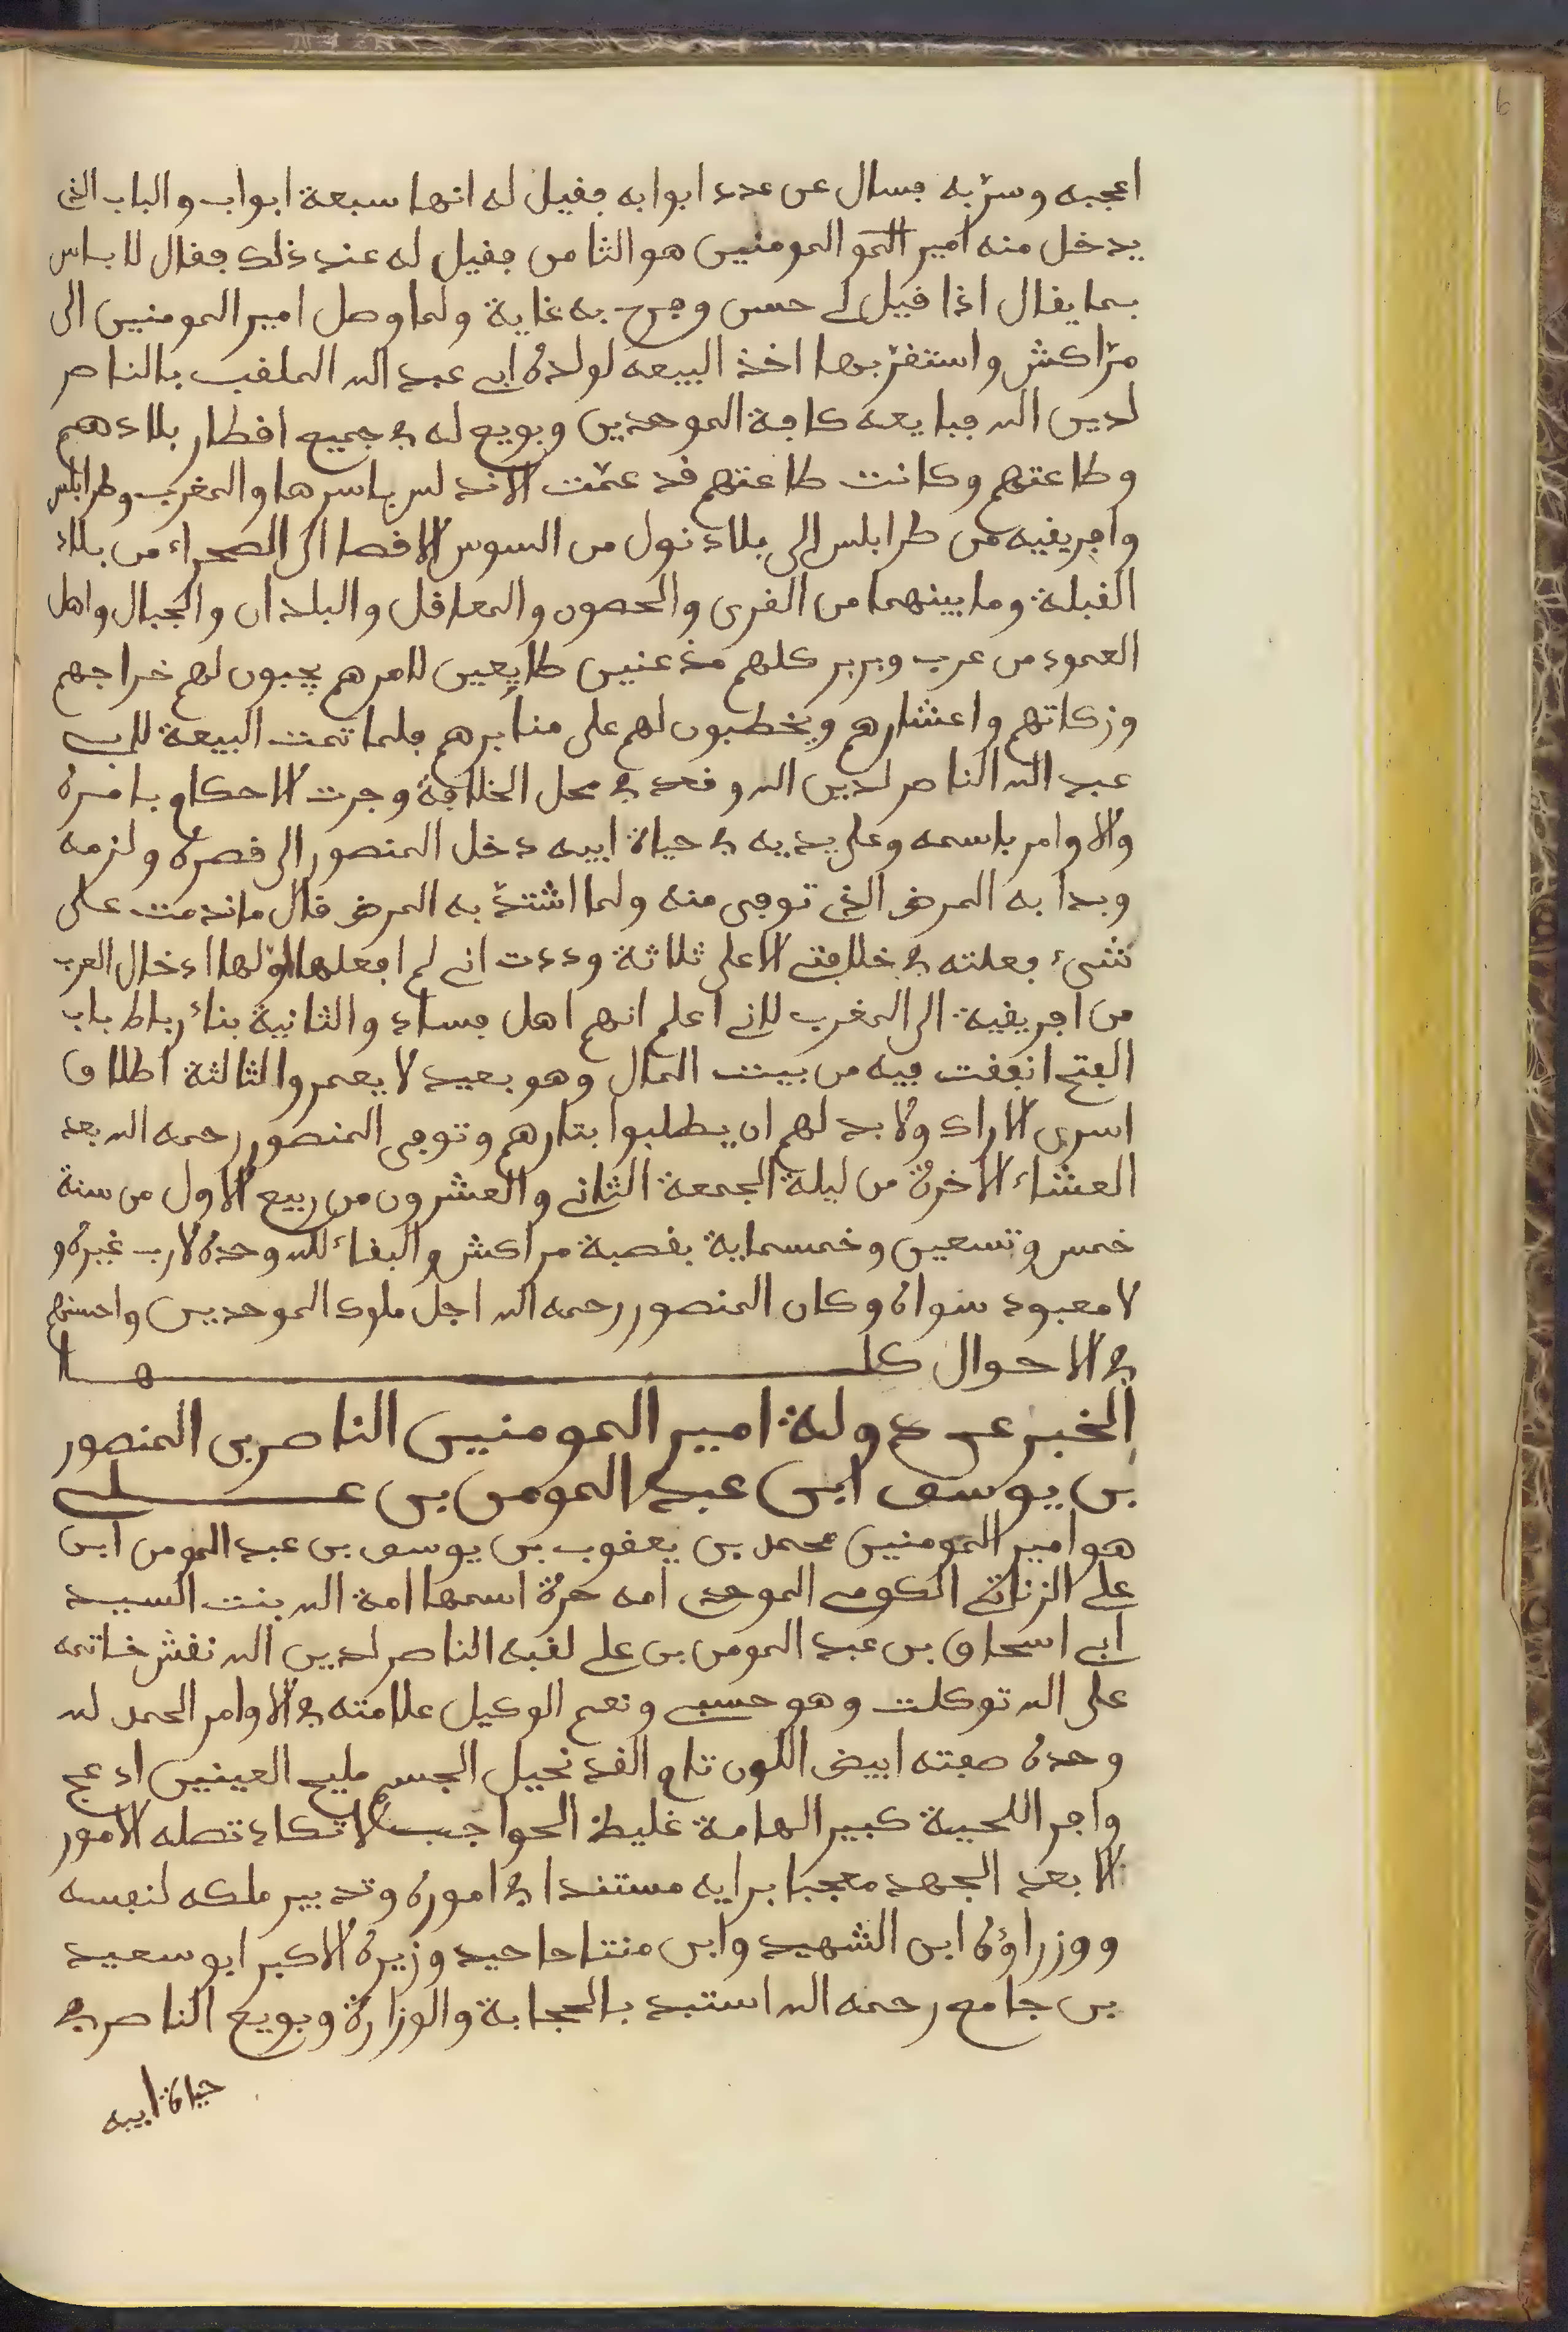 اعجبه وسرّ به فسال عن عدد ابوابه فقيل له انها سبعة ابواب والباب الذي
يدخل منه امير المو المومنين هو الثامن فقيل له عند ذلك فقال لا باس
بما يقال اذا قيل لى حسن وفرح به غاية ولما وصل امير المومنين الى
مرّاكش واستقرّ بها اخذ البيعه لولده ابي عبد الله الملقب بالناصر
لدين الله فبايعه كافة الموحدين وبويع له في جميع اقطار بلادهم
وطاعتهم وكانت طاعتهم قد عمّت الاندلس باسرها والمغرب وطرابلس
وافريقيه من طرابلس الى بلاد نول من السوس الاقصا الى الصحراء من بلاد
القبلة وما بينهما من القرى والحصون والمعاقل والبلدان والجبال واهل
العمود من عرب وبربر كلهم مذعنين طايعين لامرهم يجبون لهم خراجهم
وزكاتهم واعشارهم ويخطبون لهم على منابرهم فلما تمت البيعة لابي
عبد الله الناصر لدين الله وقعد في محل الخلافة وجرت الاحكام بامره
والاوامر باسمه وعلى يديه في حياة ابيه دخل المنصور الى قصره ولزمه
وبدا به المرض الذي توفى منه ولما اشتدّ به المرض قال ما ندمت على
شىء فعلته في خلافتي الا على ثلاثة وددت اني لم افعلها اوّلها ادخال العرب
من افريقية الى المغرب لاني اعلم انهم اهل فساد والثانية بناء رباط باب
الفتح انفقت فيه من بيت المال وهو بعيد لا يعمر والثالثة اطلاق
اسرى الاراك ولا بد لهم ان يطلبوا بتارهم وتوفى المنصور رحمه الله بعد
العشاء الاخرة من ليلة الجمعة الثاني والعشرون من ربيع الاول من سنة
خمس وتسعين وخمسماية بقصبة مراكش والبقاء لله وحده لا رب غيره و
لا معبود سواه وكان المنصور رحمه الله اجل ملوك الموحدين واحسنهم
في الاحوال كلها
الخبر عن دولة امير المومنين الناصر بن المنصور
بن يوسف ابن عبد المومن بن علي
هو امير المومنين محمد بن يعقوب بن يوسف بن عبد المومن ابن
علي الزناتي الكومي الموحدى امه حرة اسمها امة الله بنت السيد
ابي اسحاق بن عبد المومن بن علي لقبه الناصر لدين الله نقش خاتمه
على الله توكلت وهو حسبي ونعم الوكيل علامته في الاوامر الحمد لله
وحده صفته ابيض اللون تام القد نحيل الجسم مليح العينين ادعج
وافر اللحية كبير الهامة غليظ الحواجب لا تكاد تصله الامور
الا بعد الجهد معجبا برايه مستندا في اموره وتدبير ملكه لنفسه
ووزراؤه ابن الشهيد وابن منتاحاحيد وزيره الاكبر ابو سعيد
بن جامع رحمه الله استبد بالحجابة والوزارة وبويع الناصر في
حياة ابيه